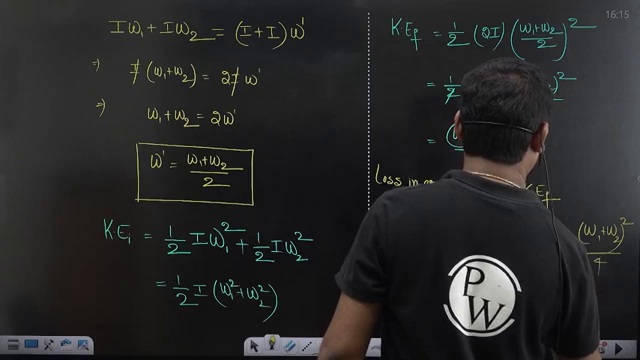 Iω₁ + Iω₂ = (I+I)ω'
⇒ I(ω₁+ω₂) = 2Iω'
⇒ ω₁+ω₂ = 2ω'
ω' = (ω₁+ω₂)/2
K.Eᵢ = 1/2 Iω₁² + 1/2 Iω₂²
= 1/2 I(ω₁²+ω₂²)
K.E_f = 1/2 (2I) ((ω₁+ω₂)/2)²
= 1/2 )²
= (
Loss in
(ω₁+ω₂)²/4
P
W
16:15